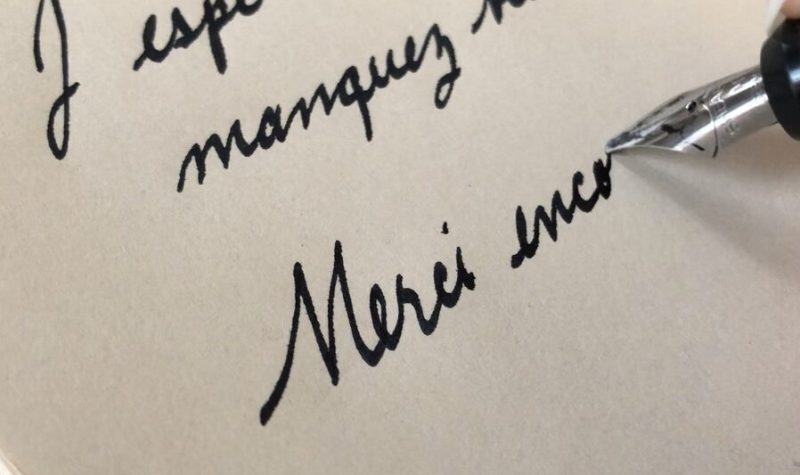 J espe
manquez
Merci enco